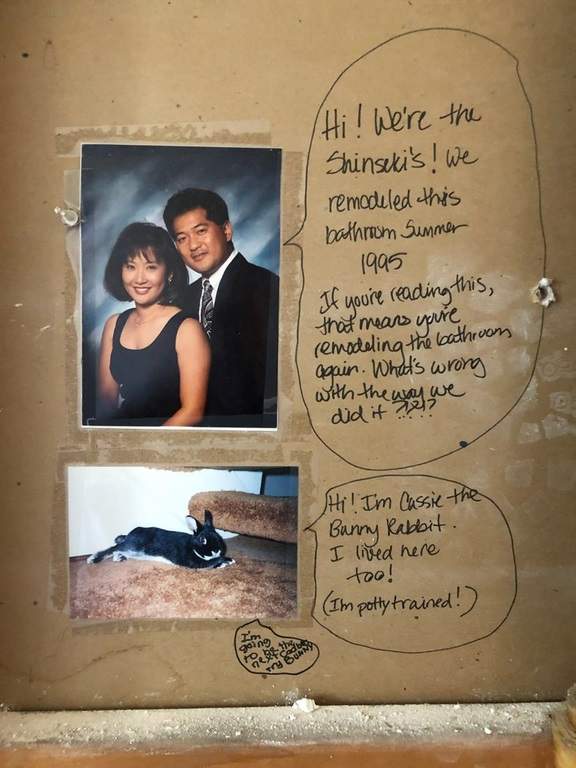 Hi! We're the
Shinseki's! We
remodeled this
bathroom Summer
1995
If you're reading this,
that means you're
remodeling the bathroom
again. What's wrong
with the way we
did it ?!?!?
Hi! I'm Cassie the
Bunny Rabbit.
I lived here
too!
(I'm potty trained!)
I'm
going
to be the
next
my Bunny